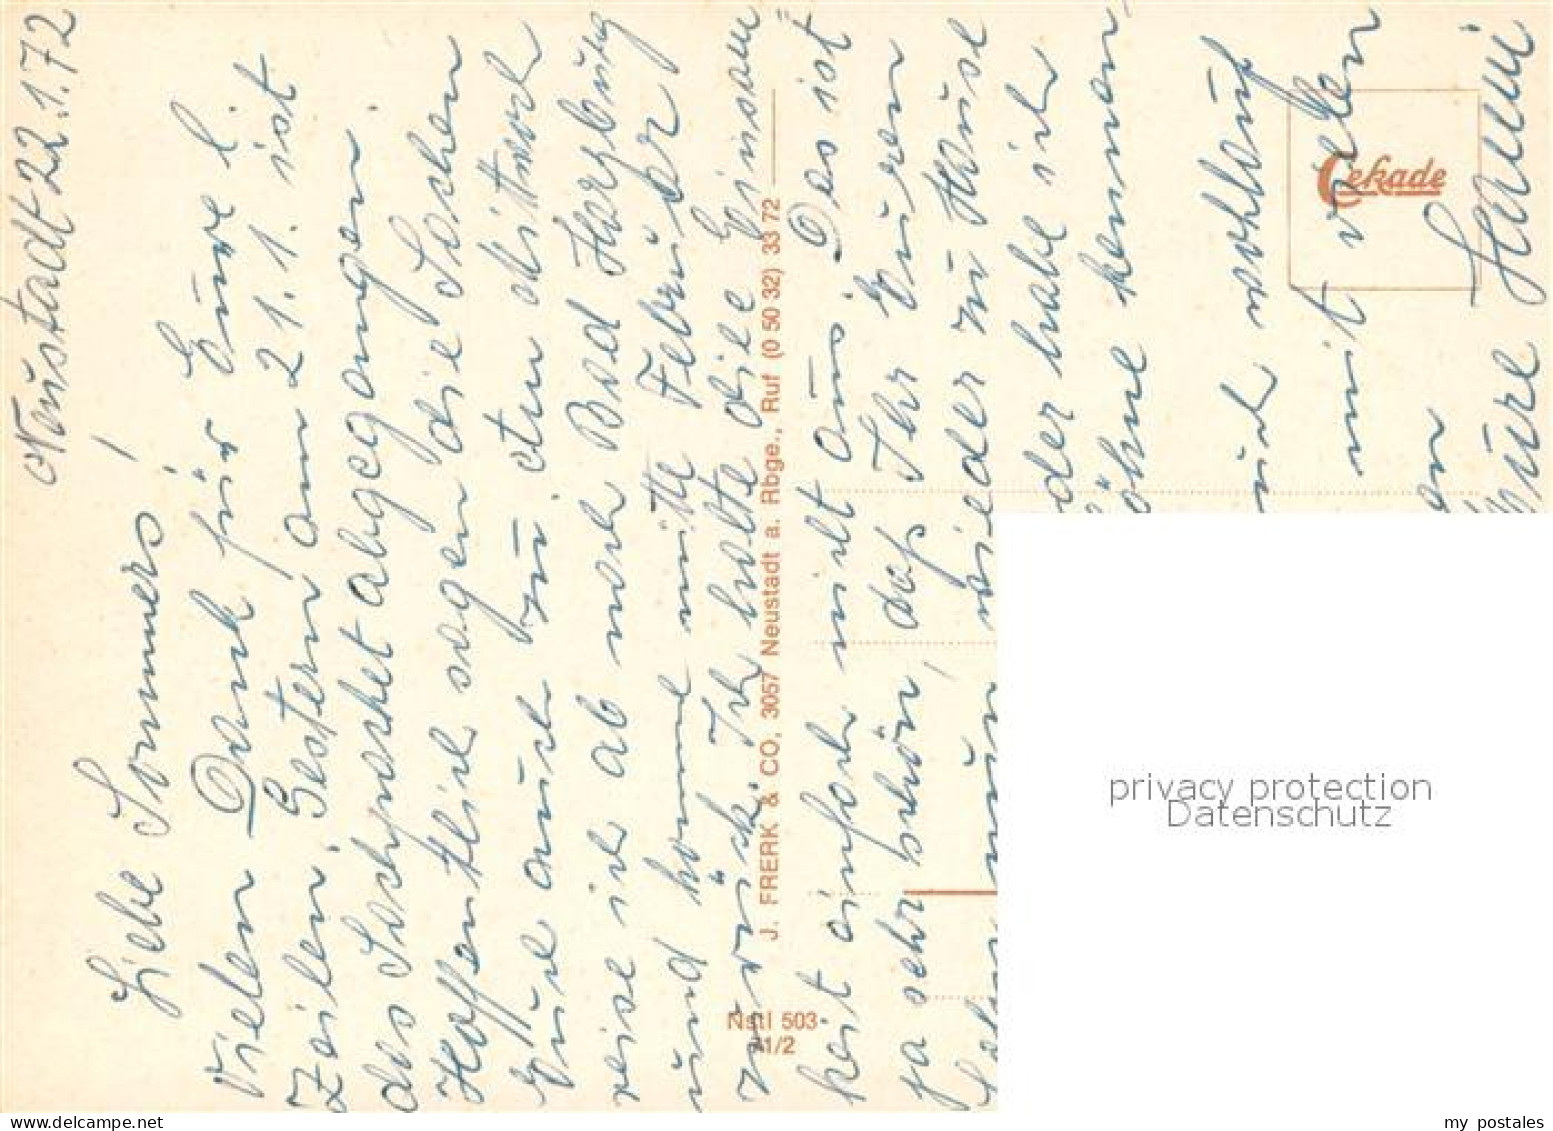 Neustadt 22.1.72
Liebe Sommers!
Vielen Dank für Eure l.
Zeilen. Gestern am 21.1. ist
das Sachpaket abgegangen.
Hoffentlich sagen die Sachen
Euch auch zu. Am Mittwoch
reise ich ab nach Bad Harzburg
und komme mitte Februar
zurück. Ich halte die Einsam
keit einfach nicht aus. Das ist
ja sehr schön, daß Ihr Euren
nun wieder zu Hause
der habe ich
öhne kennen-
uch wohlauf
mit vielen
en
Eure Hanni
J. FRERK & CO, 3057 Neustadt a. Rbge., Ruf (0 50 32) 33 72
Nstl 503
71/2
Cekade
privacy protection
Datenschutz
my postales